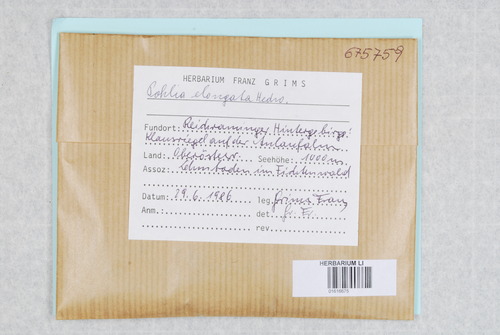 675759
HERBARIUM FRANZ GRIMS
Pohlia elongata Hedw.
Fundort: Reichraminger Hintergebirge:
Klausriegel auf der Anlaufalm
Land: Oberösterr. Seehöhe: 1000 m
Assoz: Lehmboden im Fichtenwald
Datum: 29.6.1986 leg. Grims Franz
Anm.: det. Gr. Fr.
rev.
HERBARIUM LI